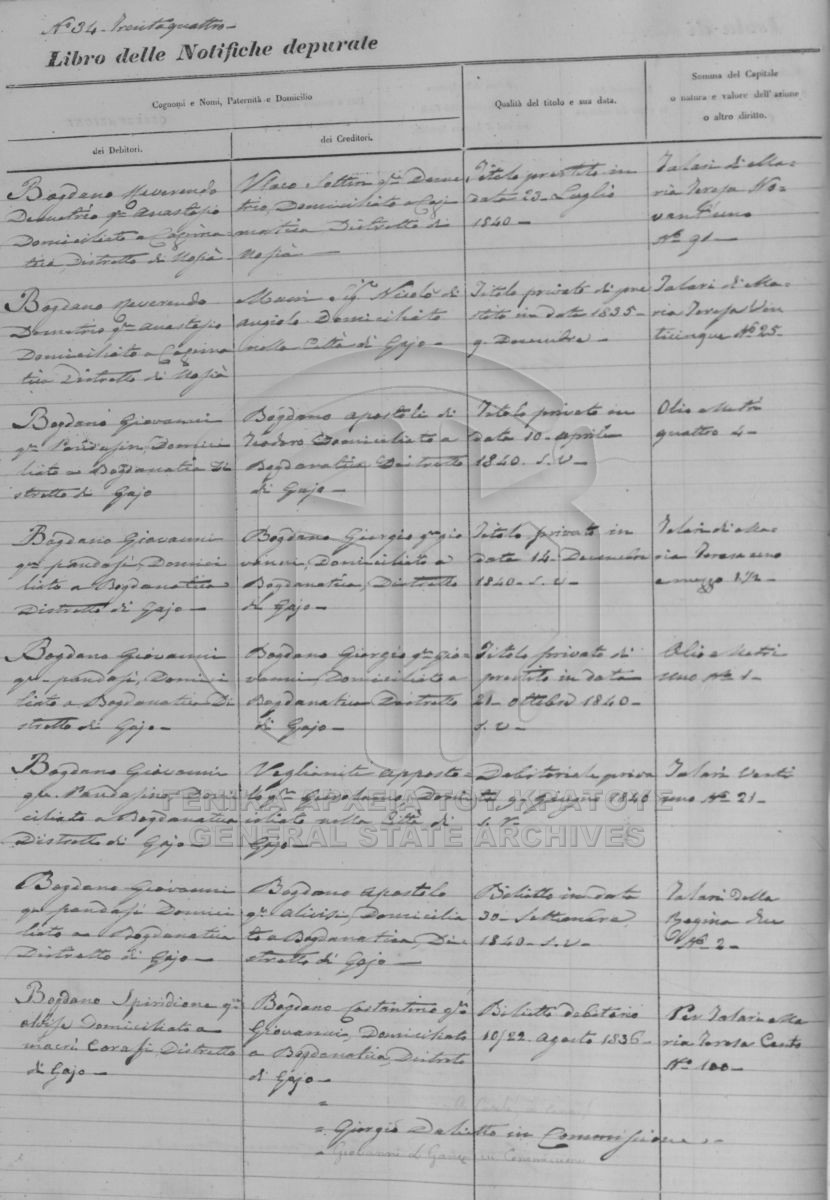 No 34 Trentaquattro
Libro delle Notifiche depurate
Cognomi e Nomi, Paternità e Domicilio
Qualità del titolo e sua data.
Somma del Capitale
o natura e valore dell'azione
o altro diritto.
dei Debitori.
dei Creditori.
Bogdano Reverendo
Demetrio qm Anastasio
Domiciliato a
Distretto di
Domiciliato a
Distretto di
Titolo prestito in
data 23 Luglio
1840
Talari di Ma-
ria Teresa No-
vant'uno
No 91
Bogdano Reverendo
Demetrio qm Anastasio
Domiciliato a
Distretto di
Nicolò di
Angiolo Domiciliato
nella Città di Gajo
Titolo privato di pre
stito in data 1835
9 Decembre
Talari di Ma-
ria Teresa Ven
ticinque No 25
Bogdano Giovanni
Domici
liato a Bogdanatica Di
stretto di Gajo
Bogdano Apostoli di
Teodoro Domiciliato a
Bogdanatica, Distretto
di Gajo
Titolo privato in
data 10 Aprile
1840. S. V
Olio Metri
quattro 4
Bogdano Giovanni
qm pandasi, Domici
liato a Bogdanatica
Distretto di Gajo
Bogdano Giorgio qm Gio
vanni, Domiciliato a
Bogdanatica, Distretto
di Gajo
Titolo privato in
data 14 Decembre
1840. S. V
Talari di Ma-
ria Teresa uno
e mezzo 1 1/2
Bogdano Giovanni
qm pandasi, Domici
liato a Bogdanatica Di
stretto di Gajo
Bogdano Giorgio qm Gio-
vanni Domiciliato a
Bogdanatica Distretto
di Gajo
Titolo privato di
prestito in data
21 Ottobre 1840
S. V
Olio Metri
uno No 1
Bogdano Giovanni
qm Domi
ciliato a Bogdanatica
Distretto di Gajo
Veglianiti Apposto-
lo qm Domi
ciliato nella Città di
Gajo
Debitoriale priva
ta 9 Giugno 1846
S. V
Talari Venti
uno No 21
Bogdano Giovanni
qm pandasi Domici
liato a Bogdanatica
Distretto di Gajo
Bogdano Apostolo
qm Alivisi, Domicilia
to a Bogdanatica, Di-
stretto di Gajo
Biglietto in data
30 Settembre
1840. S. V
Talari Della
Regina due
No 2
Bogdano Spiridione qm
Domiciliato a
Distretto
di Gajo
Bogdano Costantino qm
Giovanni, Domiciliato
a Bogdanatica, Distretto
di Gajo
Biglietto debitorio
10/22 Agosto 1836
Per Talari Ma
ria Teresa Cento
No 100
Giorgio in Commissione
ΓΕΝΙΚΑ ΑΡΧΕΙΑ ΤΟΥ ΚΡΑΤΟΥΣ
GENERAL STATE ARCHIVES